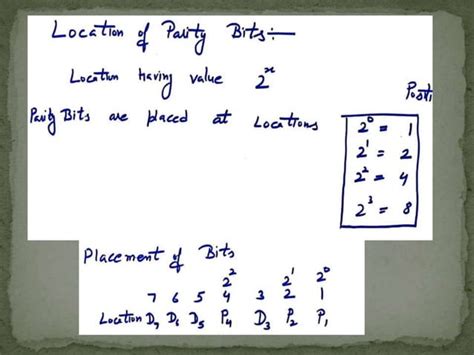 Location of Parity Bits:—
Location having value 2^x
Positi
Parity Bits are placed at Locations
2^0 = 1
2^1 = 2
2^2 = 4
2^3 = 8
Placement of Bits
2^2 2^1 2^0
7 6 5 4 3 2 1
Location D7 D6 D5 P4 D3 P2 P1